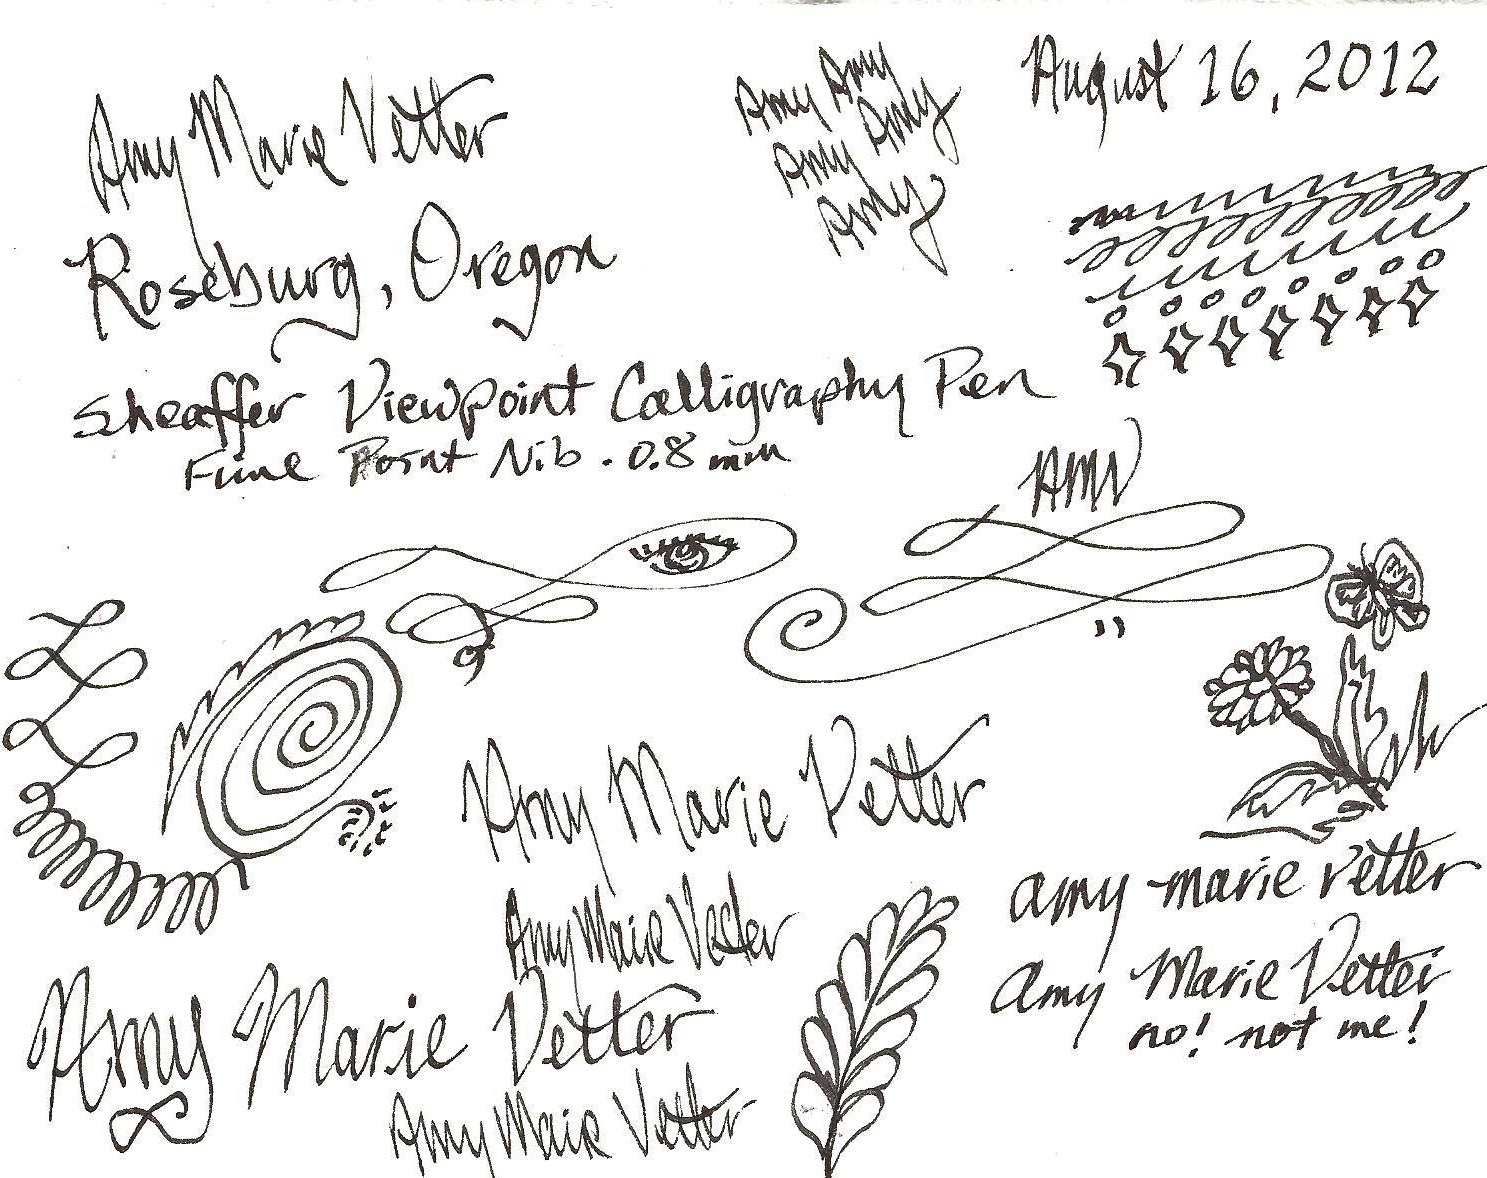 Amy Marie Vetter
Amy Amy
Amy
Amy
Amy
August 16, 2012
Roseburg, Oregon
Sheaffer Viewpoint Calligraphy Pen
Fine Point Nib . 0.8 mm
AMV
Amy Marie Vetter
amy marie vetter
Amy Marie Vetter
Amy Marie Vetter
Amy Marie Vetter
no! not me!
Amy Marie Vetter